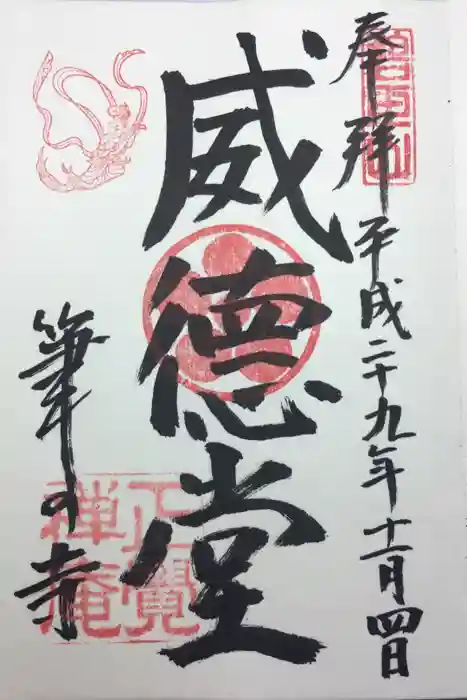 奉拝
平成二十九年十一月四日
威徳堂
筆の寺
正覺
禅庵